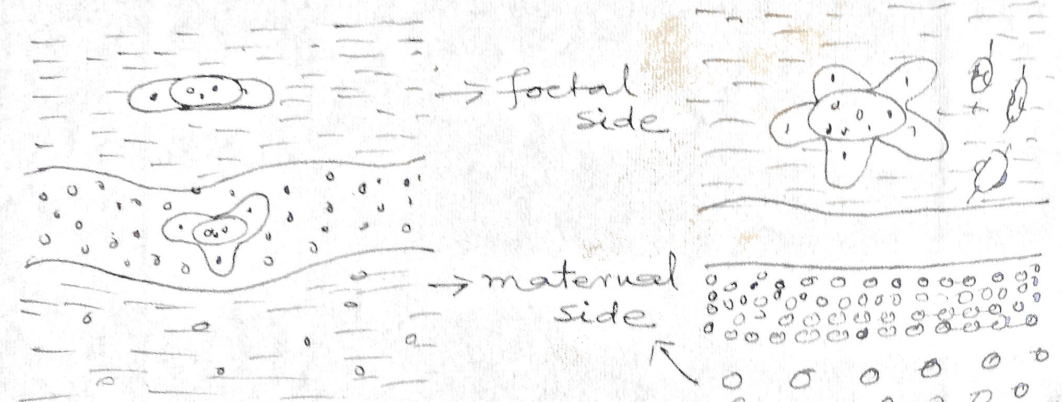 foetal
side
maternal
side